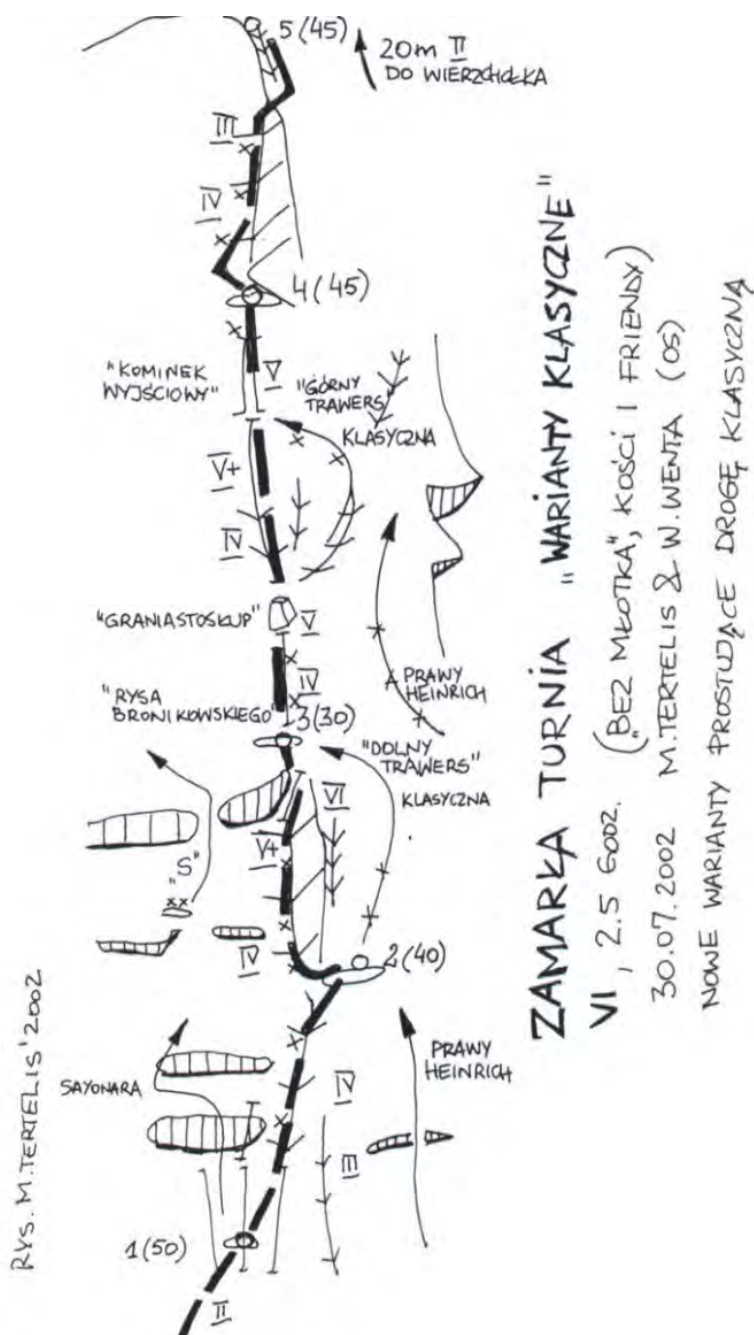 5 (45)
20m II
DO WIERZCHOŁKA
III
IV
4 (45)
"KOMINEK
WYJŚCIOWY"
V
"GÓRNY
TRAWERS"
KLASYCZNA
V+
IV
"GRANIASTOSŁUP"
V
IV
PRAWY
HEINRICH
"RYSA
BRONIKOWSKIEGO"
3(30)
"DOLNY
TRAWERS"
KLASYCZNA
VI
V+
"S"
IV
2(40)
SAYONARA
IV
PRAWY
HEINRICH
III
1(50)
II
ZAMARŁA TURNIA "WARIANTY KLASYCZNE"
VI, 2.5 GODZ. ("BEZ MŁOTKA", KOŚCI I FRIENDY)
30.07.2002 M.TERTELIS & W.WENTA (OS)
NOWE WARIANTY PROSTUJĄCE DROGĘ KLASYCZNĄ
RYS. M.TERTELIS'2002